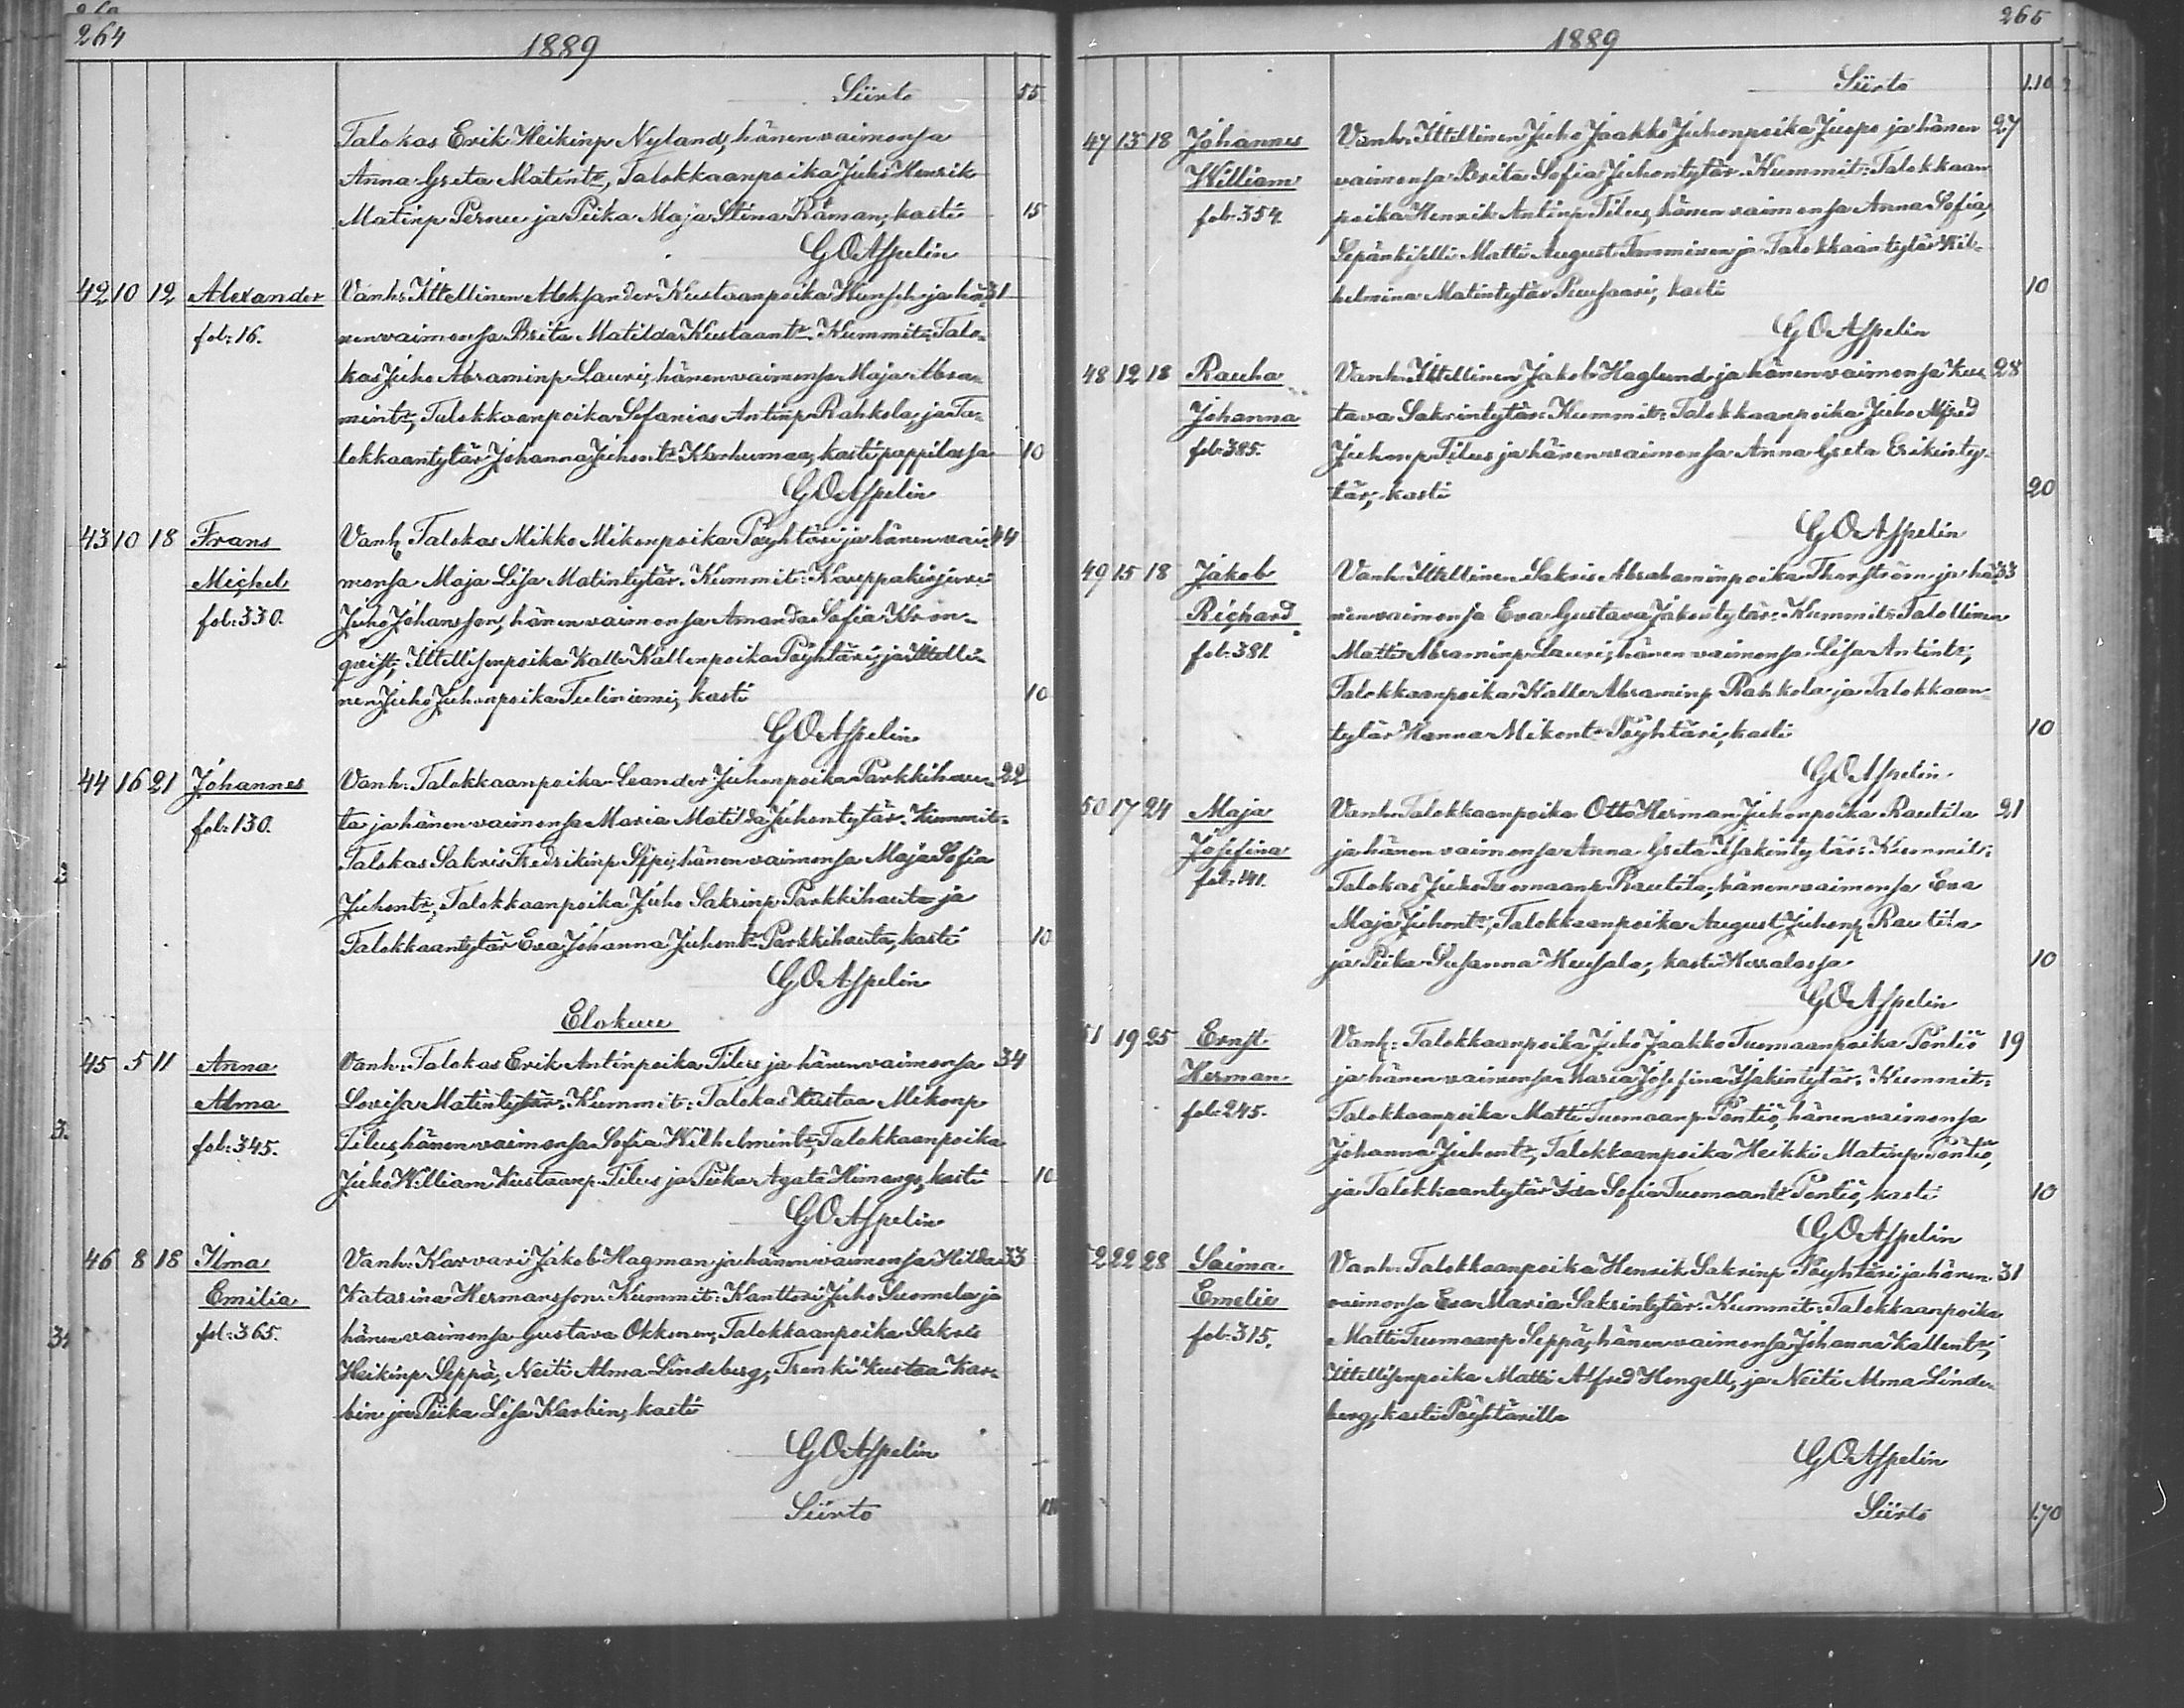 264
1889
Siirto 55
Talokas Erik Heikinp Nyland, hänen vaimonsa
Anna Greta Matintr, Talokkaanpoika Juho Henrik
Matinp Pernu ja Piika Maja Stina Råman; kasti 15
GOAspelin
42 10 12 Alexander Vanh: Ittellinen Aleksander Kustaanpoika Hunsch ja hä- 31
fol: 16. nen vaimonsa Brita Matilda Kustaantr. Kummit: Talo-
kas Juho Abraminp Lauri, hänen vaimonsa Maja Abra-
mintr, Talokkaanpoika Sefanias Antinp Rahkola, ja Ta-
lokkaantytär Johanna Juhontr Karhumaa, kasti pappilassa 10
GOAspelin
43 10 18 Frans Vanh Talokas Mikko Mikonpoika Pöyhtäri ja hänen vai- 44
Michel monsa Maja Lisa Matintytär. Kummit: Kauppakirjuri
fol: 330. Juho Johansson, hänen vaimonsa Amanda Sofia Kron-
qvist, Ittellisenpoika Kalle Kallenpoika Pöyhtäri, ja Ittelli-
nen Juho Juhonpoika Tuliniemi, kasti 10
GOAspelin
44 16 21 Johannes Vanh: Talokkaanpoika Leander Juhonpoika Parkkihau- 22
fol: 130. ta ja hänen vaimonsa Maria Matilda Juhontytär. Kummit:
Talokas Sakris Fredrikinp Sippi, hänen vaimonsa Maja Sofia
Juhontr, Talokkaanpoika Juho Sakrinp Parkkihauta ja
Talokkaantytär Eva Johanna Juhontr Parkkihauta, kasti 10
GOAspelin
Elokuu
45 5 11 Anna Vanh: Talokas Erik Antinpoika Tilus ja hänen vaimonsa 34
Alma Lovisa Matintytär. Kummit: Talokas Kustaa Mikonp
fol: 345. Tilus, hänen vaimonsa Sofia Wilhelmintr, Talokkaanpoika
Juho William Kustaanp Tilus ja Piika Agata Himanga, kasti 10
GOAspelin
46 8 18 Ilma Vanh: Karvari Jakob Hagman ja hänen vaimonsa Hilda 33
Emilia Katarina Hermansson. Kummit: Kanttori Juho Suomela ja
fol: 365. hänen vaimonsa Gustava Okkonen, Talokkaanpoika Sakris
Heikinp Seppä, Neiti Alma Lindeberg, Trenki Kustaa Kar-
bin ja Piika Lisa Karbin, kasti
GOAspelin
Siirto 110
265
1889
Siirto 1.10
47 13 18 Johannes Vanh. Ittellinen Juho Jaakko Juhonpoika Juopo ja hänen 27
William vaimonsa Brita Sofia Juhontytär. Kummit: Talokkaan
fol: 354. poika Henrik Antinp Tilus, hänen vaimonsa Anna Sofia,
Sepänkiselli Matti August Tamminen ja Talokkaantytär Wil-
helmina Matintytär Puusaari, kasti 10
GOAspelin
48 12 18 Rauha Vanh. Ittellinen Jakob Haglund ja hänen vaimonsa Kus- 28
Johanna tava Sakrintytär: Kummit: Talokkaanpoika Juho Alfred
fol: 385. Juhonp Tilus ja hänen vaimonsa Anna Greta Erikinty-
tär, kasti 20
GOAspelin
49 15 18 Jakob Vanh. Ittellinen Sakris Abrahaminpoika Thorström ja hä- 33
Richard nen vaimonsa Eva Gustava Jakontytär: Kummit: Talollinen
fol: 381. Matti Abraminp Lauri, hänen vaimonsa Lisa Antintr,
Talokkaanpoika Kalle Abraminp Rahkola ja Talokkaan-
tytär Hanna Mikontr Pöyhtäri, kasti 10
GOAspelin
50 17 24 Maja Vanh. Talokkaanpoika Otto Herman Juhonpoika Rautila 21
Josefina ja hänen vaimonsa Anna Greta Isakintytär: Kummit:
fol: 141. Talokas Juho Tuomaanp Rautila, hänen vaimonsa Eva
Maja Juhontr, Talokkaanpoika August Juhonp Rautila
ja Piika Susanna Kuusala, kasti Kerolassa 10
GOAspelin
51 19 25 Ernst Vanh: Talokkaanpoika Juho Jaakko Tuomaanpoika Pöntiö 19
Herman ja hänen vaimonsa Maria Josefina Isakintytär. Kummit:
fol: 245. Talokkaanpoika Matti Tuomaanp Pöntiö, hänen vaimonsa
Johanna Juhontr, Talokkaanpoika Heikki Matinp Pöntiö,
ja Talokkaantytär Ida Sofia Tuomaantr Pöntiö, kasti 10
GOAspelin
52 22 28 Saima Vanh. Talokkaanpoika Henrik Sakrinp Pöyhtäri ja hänen 31
Emelie vaimonsa Eva Maria Sakrintytär. Kummit: Talokkaanpoika
fol: 315. Matti Tuomaanp Seppä, hänen vaimonsa Johanna Kallentr,
Ittellisenpoika Matti Alfred Hongell, ja Neiti Alma Linde-
berg, kasti Pöyhtärillä
GOAspelin
Siirto 1.70